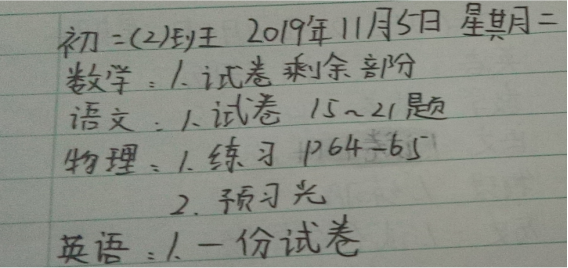 初二(2)班 2019年11月5日 星期二
数学：1. 试卷剩余部分
语文：1. 试卷 15~21题
物理：1. 练习 P64-65
2. 预习光
英语：1. 一份试卷